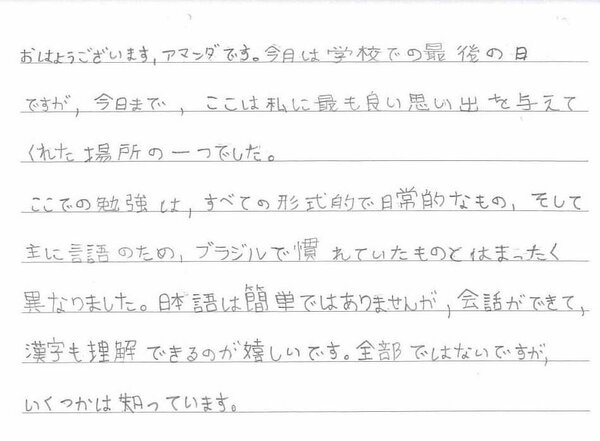 おはようございます,アマンダです。今日は学校での最後の日
ですが,今日まで,ここは私に最も良い思い出を与えて
くれた場所の一つでした。
ここでの勉強は,すべての形式的で日常的なもの,そして
主に言語のため,ブラジルで慣れていたものとはまったく
異なりました。日本語は簡単ではありませんが,会話ができて,
漢字も理解できるのが嬉しいです。全部ではないですが,
いくつかは知っています。